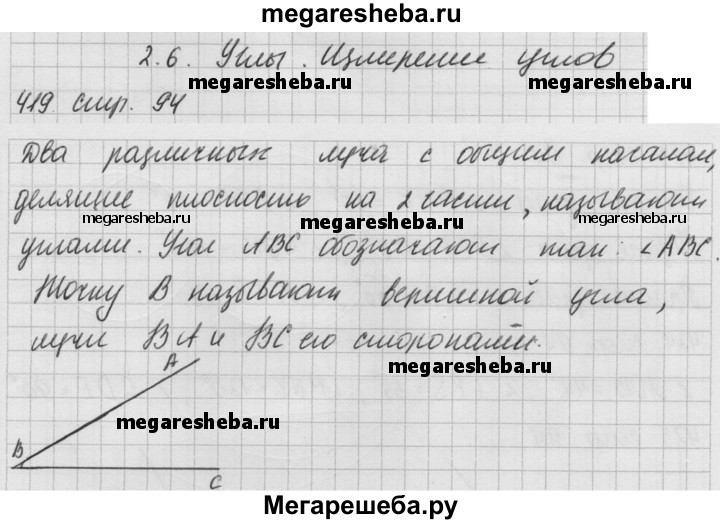 megaresheba.ru
2.6. Углы. Измерение углов
megaresheba.ru megaresheba.ru
419 стр. 94
Два различных луча с общим началом,
делящие плоскость на 2 части, называют
megaresheba.ru megaresheba.ru megaresheba.ru
углами. Угол ABC обозначают так: ∠ABC.
Точку B называют вершиной угла,
лучи BA и BC его сторонами.
A megaresheba.ru
megaresheba.ru
B
C
Мегарешеба.ру